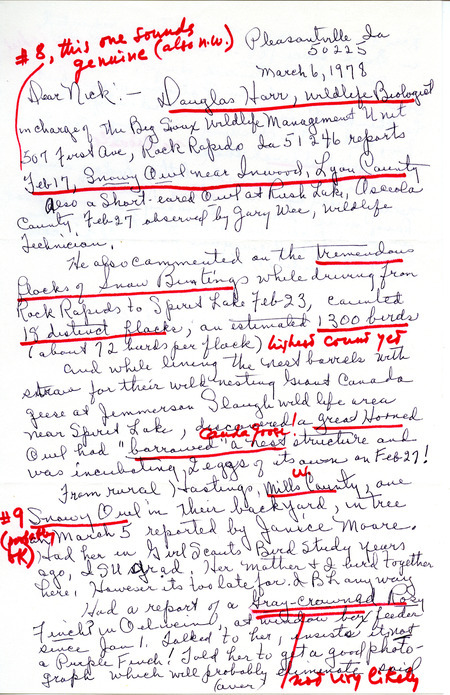 #8, this one sounds
genuine (also n.w.)
Pleasantville Ia
50225
March 6, 1978
Dear Nick: - Douglas Harr, Wildlife Biologist
in charge of the Big Sioux Wildlife Management Unit
507 First Ave, Rock Rapids Ia 51246 reports
Feb 17, Snowy Owl near Inwood, Lyon County
Also a Short-eared Owl at Rush Lake, Osceola
County, Feb 27 observed by Gary Wee, wildlife
Technician.
He also commented on the tremendous
flocks of Snow Buntings while driving from
Rock Rapids to Spirit Lake Feb 23, counted
18 distinct flocks, an estimated 1300 birds
(about 72 birds per flock) highest count yet
and while lining the nest barrels with
straw for their wild nesting Giant Canada
geese at Jemmerson Slough wild life area
near Spirit Lake, discovered a great Horned
Canada Goose
Owl had "borrowed" a nest structure and
was incubating 2 eggs of its own on Feb 27!
W
From rural Hastings, Mills County, one
#9 Snowy Owl in their backyard, in tree
(probably OK)
March 5 reported by Janice Moore.
Had her in Girl Scouts Bird Study years
ago, ISU grad. Her mother & I bird together
here. However its too late for I B L any way
Had a report of a Gray-crowned Rosy
Finch? in Oelwein, at window box feeder
since Jan 1. Talked to her, insists it not
a Purple Finch! Told her to get a good photo-
graph which will probably eliminate
(over
not very likely